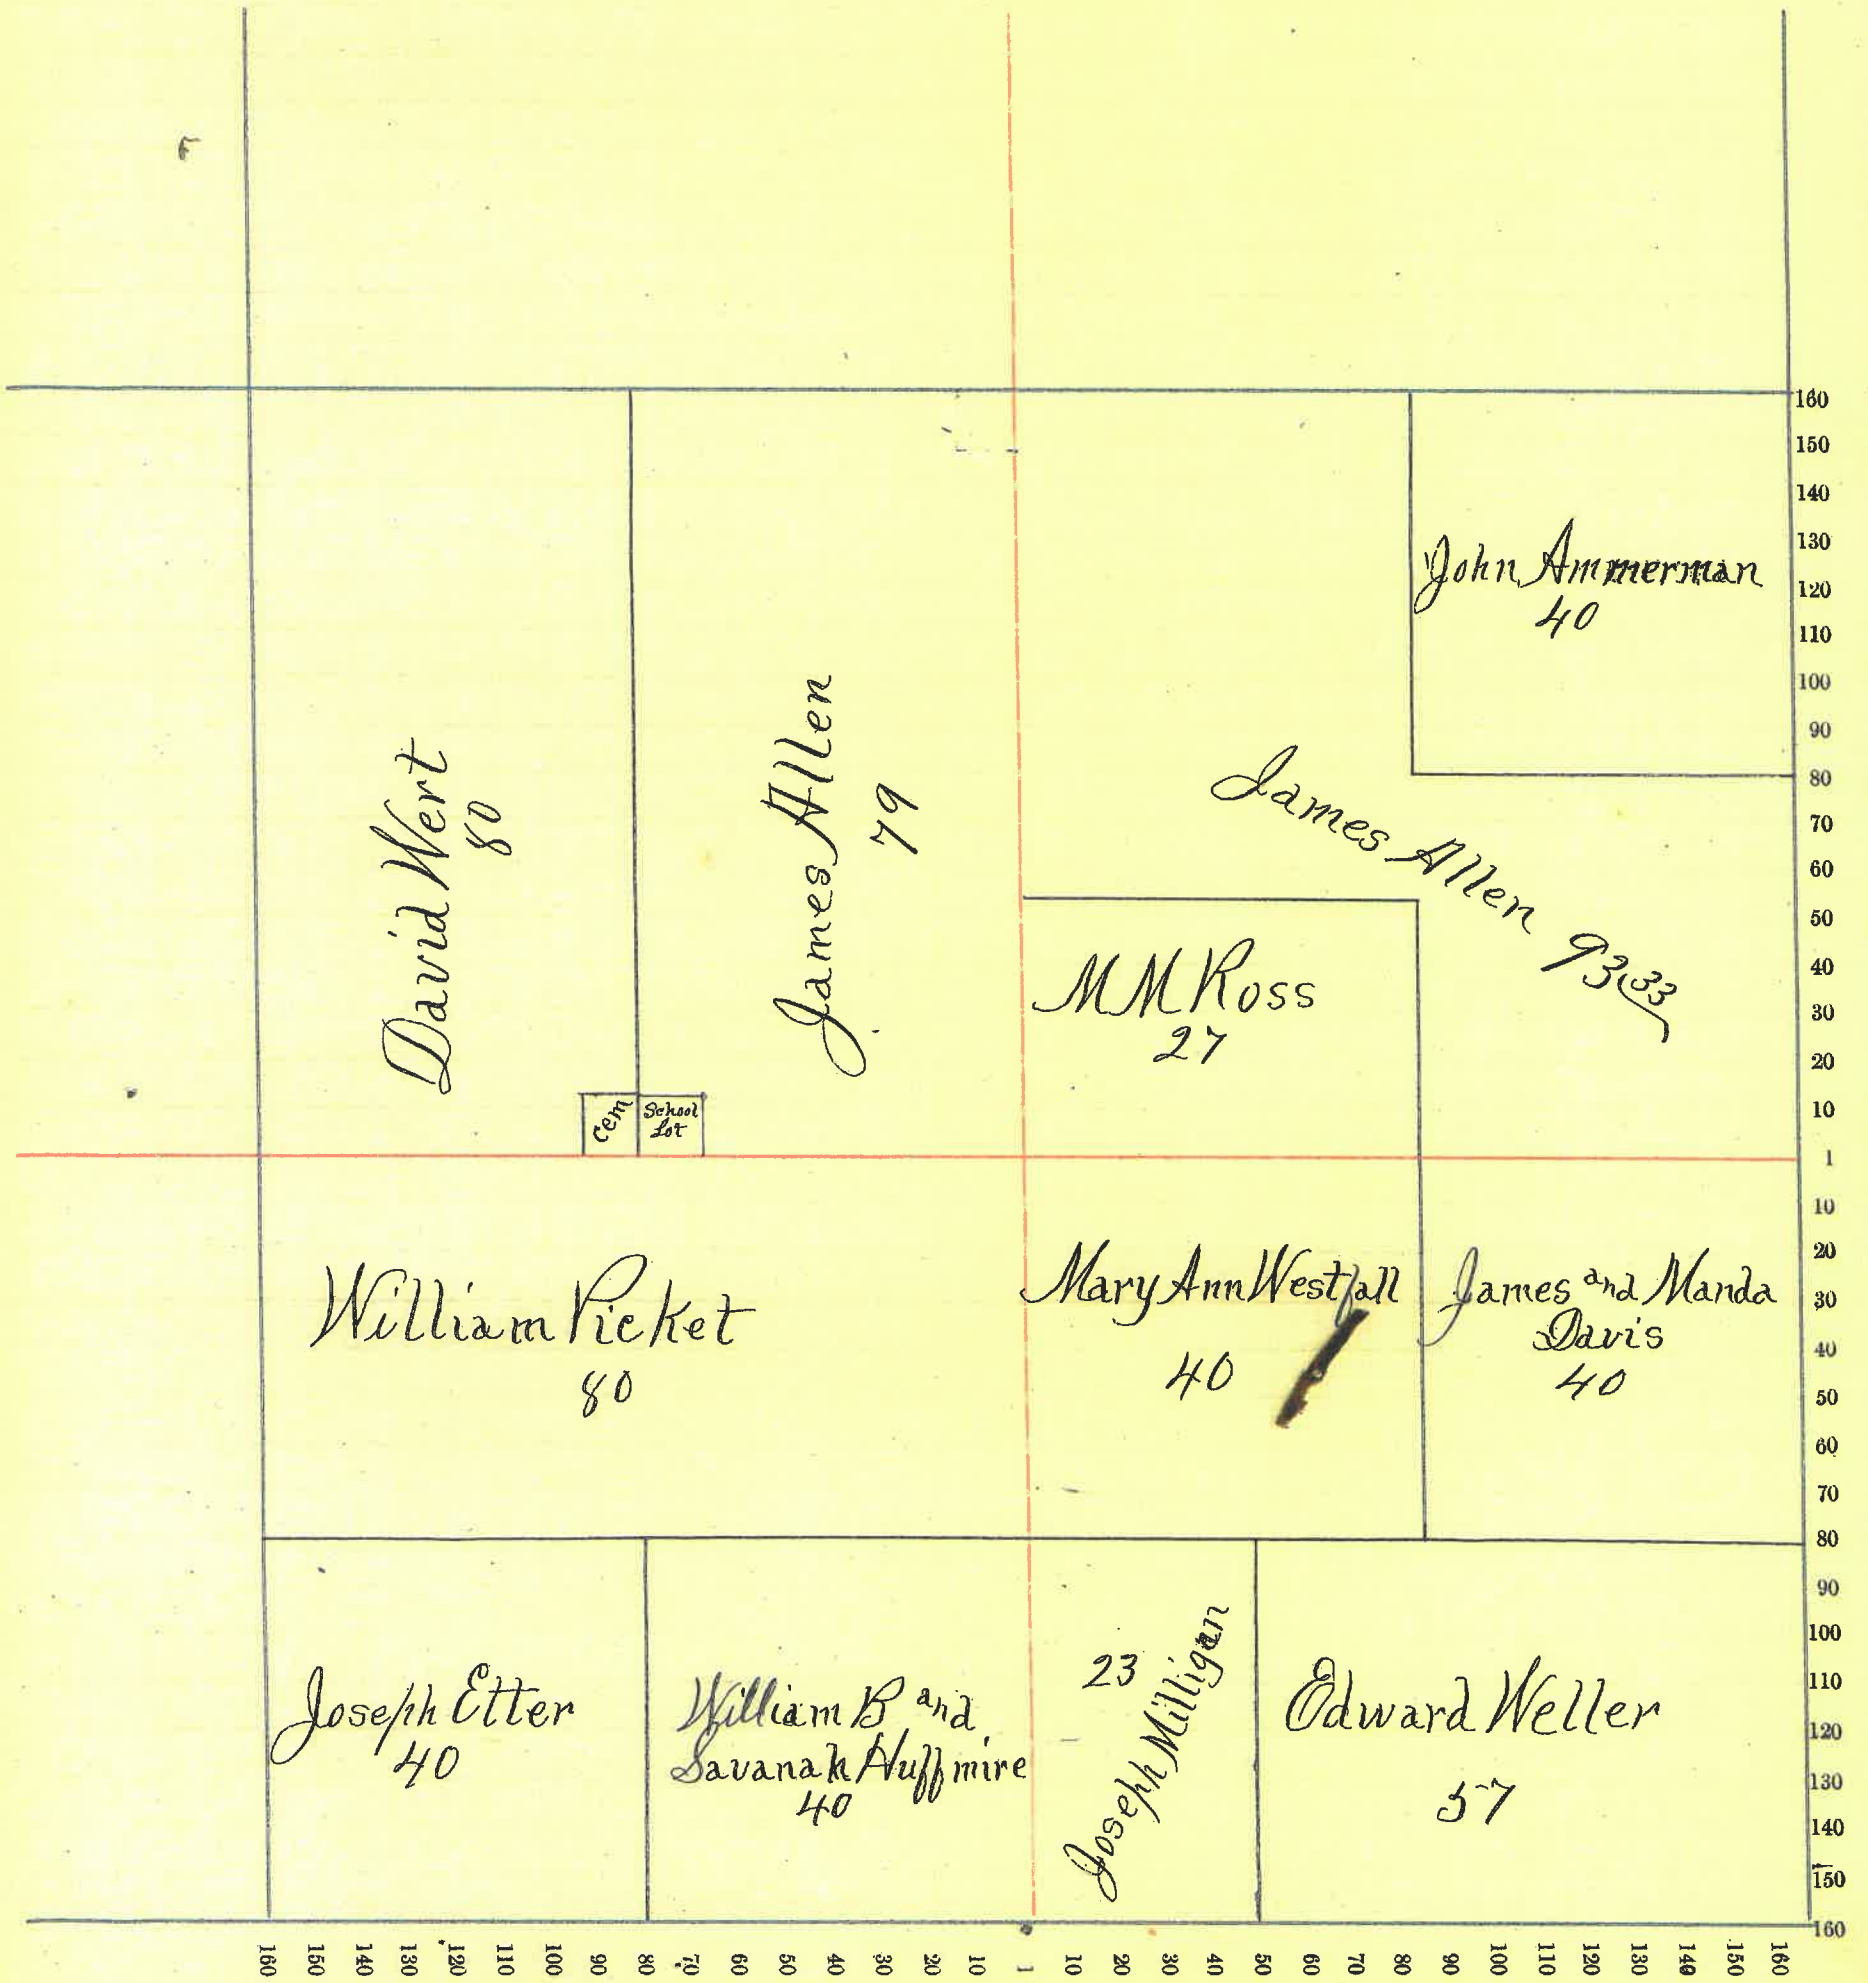 John Ammerman
40
David Wert
80
James Allen
79
James Allen 93.33
M M Ross
27
Cem
School
Lot
William Picket
80
Mary Ann Westfall
40
James and Manda
Davis
40
Joseph Etter
40
William B and
Savanah Huffmire
40
23
Joseph Milligan
Edward Weller
57
160
150
140
130
120
110
100
90
80
70
60
50
40
30
20
10
1
10
20
30
40
50
60
70
80
90
100
110
120
130
140
150
160
160 150 140 130 120 110 100 90 80 70 60 50 40 30 20 10 1 10 20 30 40 50 60 70 80 90 100 110 120 130 140 150 160